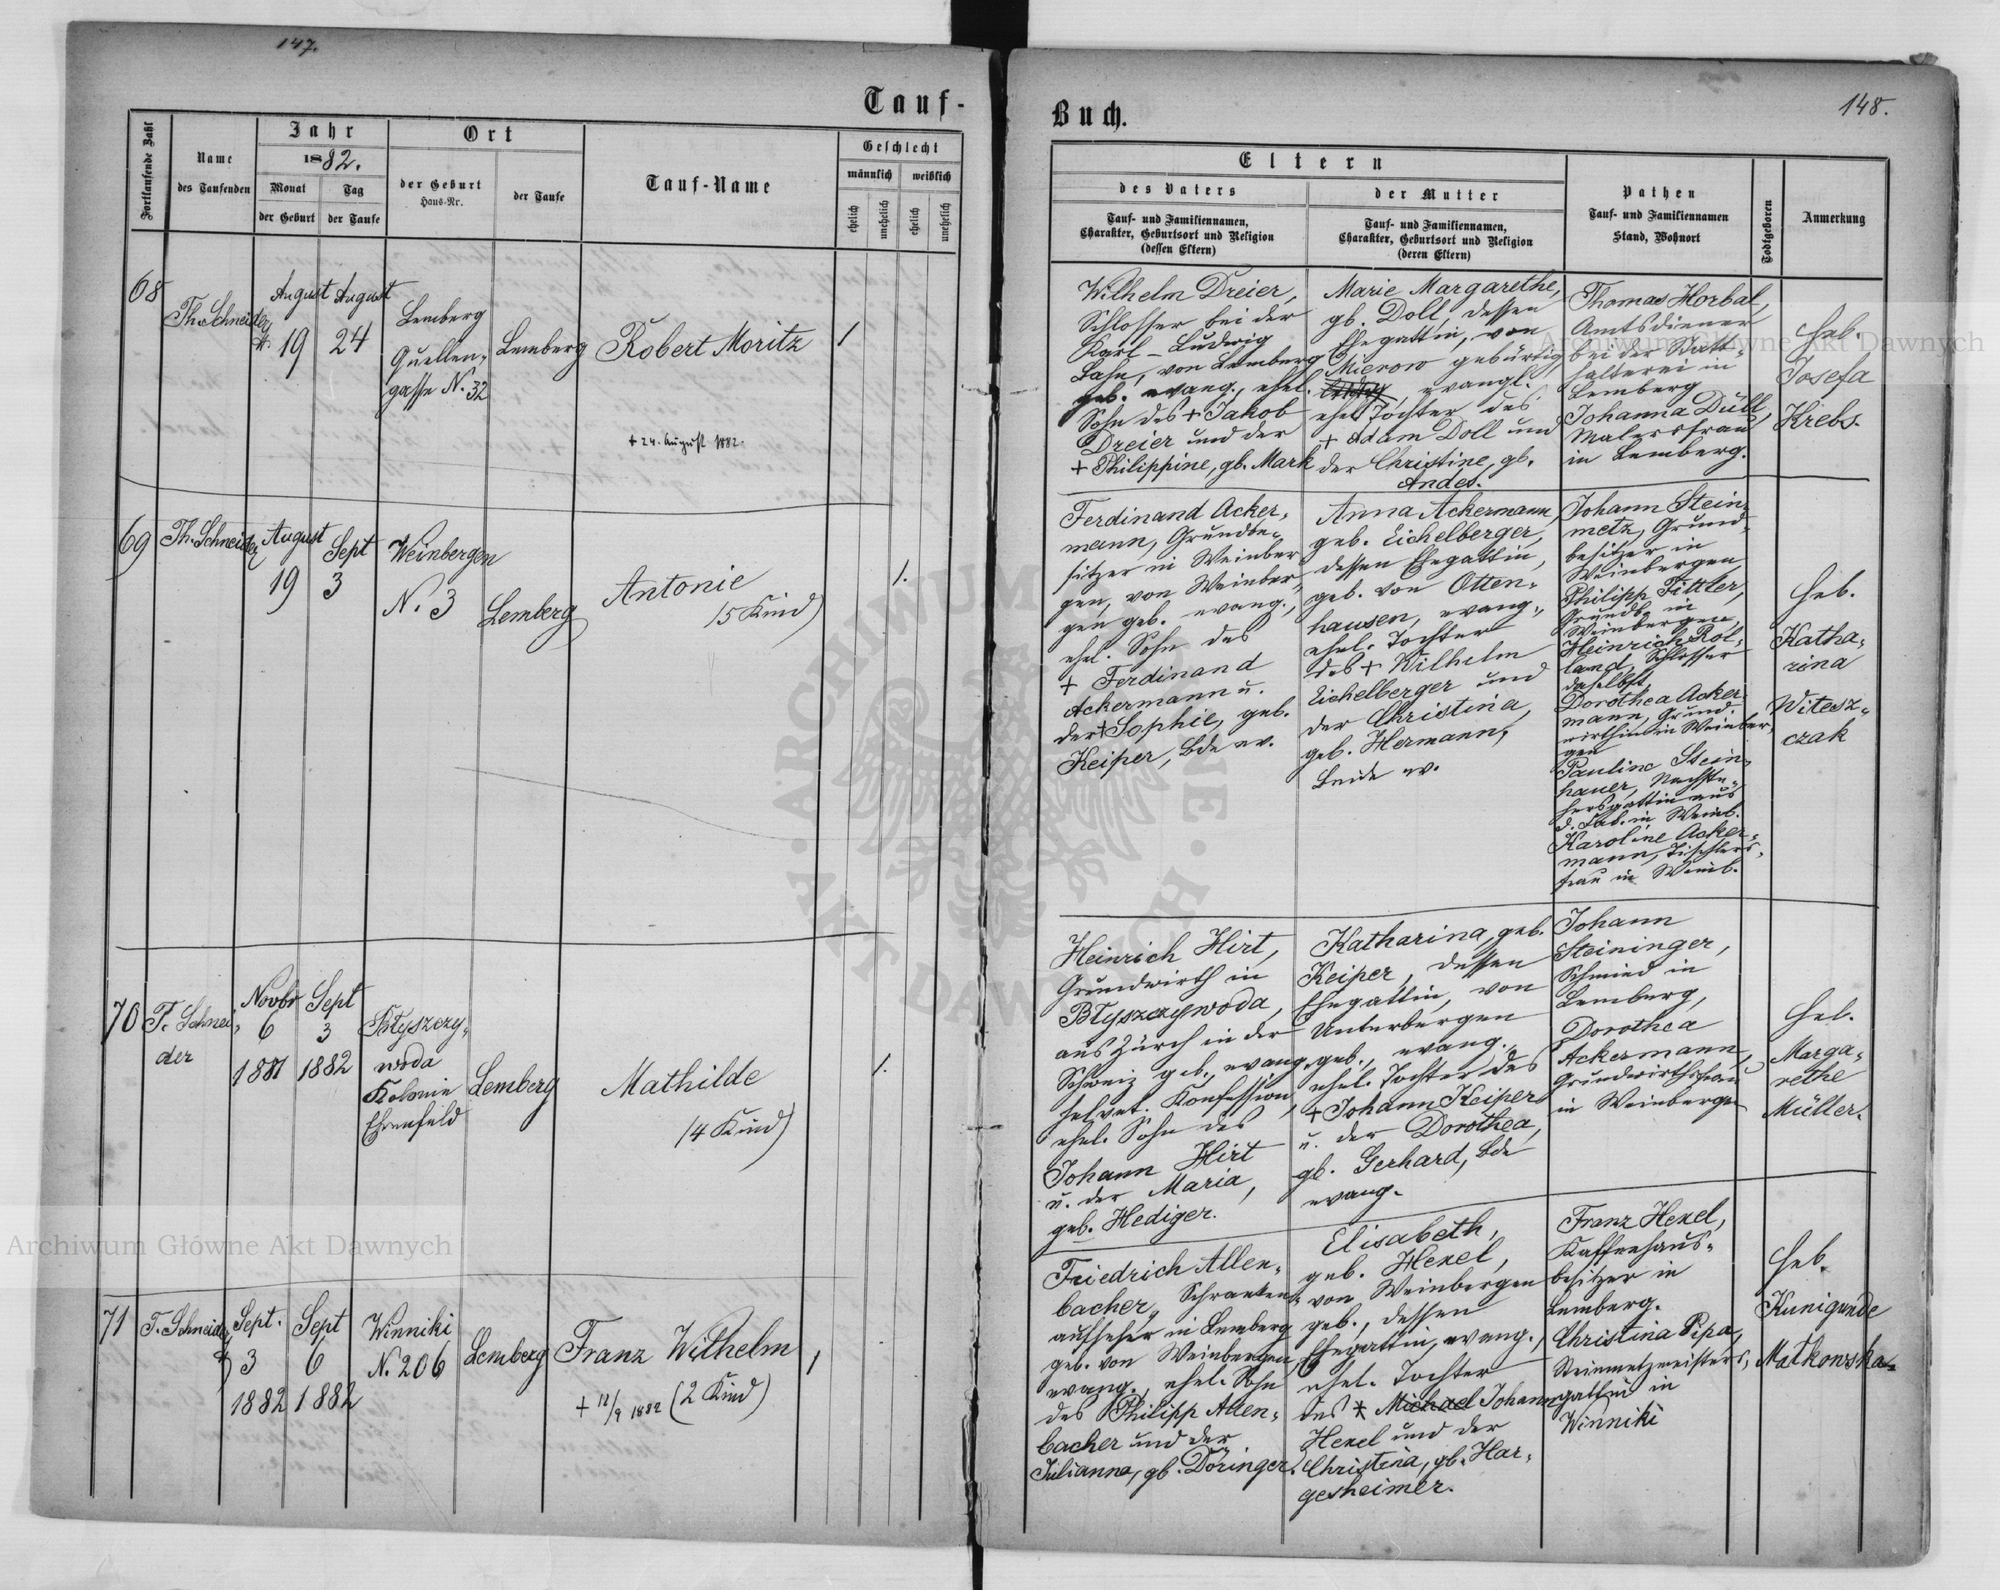 147.
Tauf-
Fortlaufende Zahl
Name
des Taufenden
Jahr
1882.
Monat
der Geburt
Tag
der Taufe
Ort
der Geburt
Haus-Nr.
der Taufe
Tauf-Name
Geschlecht
männlich
weiblich
ehelich
unehelich
ehelich
unehelich
68
Th. Schneider
August
19
August
24
Lemberg
Quellen-
gasse N. 32
Lemberg
Robert Moritz
1
+ 24. August 1882.
69
Th. Schneider
August
19
Sept
3
Weinbergen
N. 3
Lemberg
Antonie
(5 Kind)
1.
70
T. Schnei-
der
Novbr
6
1881
Sept
3
1882
Błyszczy-
woda
Kolonie
Ehrenfeld
Lemberg
Mathilde
(4 Kind)
1.
71
T. Schneider
Sept.
3
1882
Sept
6
1882
Winniki
N. 206
Lemberg
Franz Wilhelm
+ 12/9 1882 (2 Kind)
1
Buch.
148.
Eltern
des Vaters
Tauf- und Familiennamen,
Charakter, Geburtsort und Religion
(dessen Eltern)
der Mutter
Tauf- und Familiennamen,
Charakter, Geburtsort und Religion
(deren Eltern)
Pathen
Tauf- und Familiennamen
Stand, Wohnort
Todtgeboren
Anmerkung
Wilhelm Dreier,
Schlosser bei der
Karl-Ludwig
Bahn, von Lemberg
geb. evang., ehel.
Sohn des + Jakob
Dreier und der
+ Philippine, gb. Mark
Marie Margarethe,
gb. Doll, dessen
Ehegattin, von
Mierow gebürtig,
evangl.
ehel Tochter des
+ Adam Doll und
der Christine, gb.
Andes.
Thomas Horbal,
Amtsdiener
bei der Statt-
halterei in
Lemberg
Johanna Düll,
Malersfrau
in Lemberg.
Heb.
Josefa
Krebs.
Ferdinand Acker-
mann, Grundbe-
sitzer in Weinber
gen, von Weinber-
gen geb. evang.,
ehel. Sohn des
+ Ferdinand
Ackermann u.
der + Sophie, geb.
Keiper, bde ev.
Anna Ackermann,
geb. Eichelberger,
dessen Ehegattin,
geb. von Otten-
hausen, evang.,
ehel. Tochter
des + Wilhelm
Eichelberger und
der Christina,
geb. Hermann,
beide ev.
Johann Stein-
metz, Grund-
besitzer in
Weinbergen
Philipp Fittler,
Grundb. in
Weinbergen,
Heinrich Rol-
land, Schlosser
daselbst,
Dorothea Acker-
mann, Grund-
wirthin in Weinber-
gen
Pauline Stein-
hauer,
gattin aus
in Weinb.
Karoline Acker-
mann, Tischlers-
frau in Weinb.
Heb.
Katha-
rina
Witesz-
czak
Heinrich Hirt,
Grundwirth in
Błyszczywoda,
aus Zürch in der
Schweiz geb., evang.
helvet. Konfession,
ehel. Sohn des
Johann Hirt
u. der Maria,
geb. Hediger.
Katharina, geb.
Keiper, dessen
Ehegattin, von
Unterbergen
geb., evang.,
ehel. Tochter des
+ Johann Keiper
u. der Dorothea,
gb. Gerhard, bde
evang.
Johann
Steininger,
Schmied in
Lemberg,
Dorothea
Ackermann,
Grundwirthsfrau
in Weinbergen
Heb.
Marga-
rethe
Müller.
Friedrich Allen-
bacher, Schranken-
aufseher in Lemberg
geb. von Weinbergen,
evang., ehel. Sohn
des Philipp Allen-
bacher und der
Julianna, gb. Döringer.
Elisabeth,
geb. Hexel,
von Weinbergen
geb., dessen
Ehegattin, evang.,
ehel. Tochter
des + Michael Johann
Hexel und der
Christina, gb. Har-
gesheimer.
Franz Hexel,
Kaffeehaus-
besitzer in
Lemberg.
Christina Pipa,
Steinmetzmeisters-
gattin in
Winniki
Heb.
Kunigunde
Matkowska.
Archiwum Główne Akt Dawnych
Archiwum Główne Akt Dawnych
ARCHIWUM GŁÓWNE AKT DAWNYCH